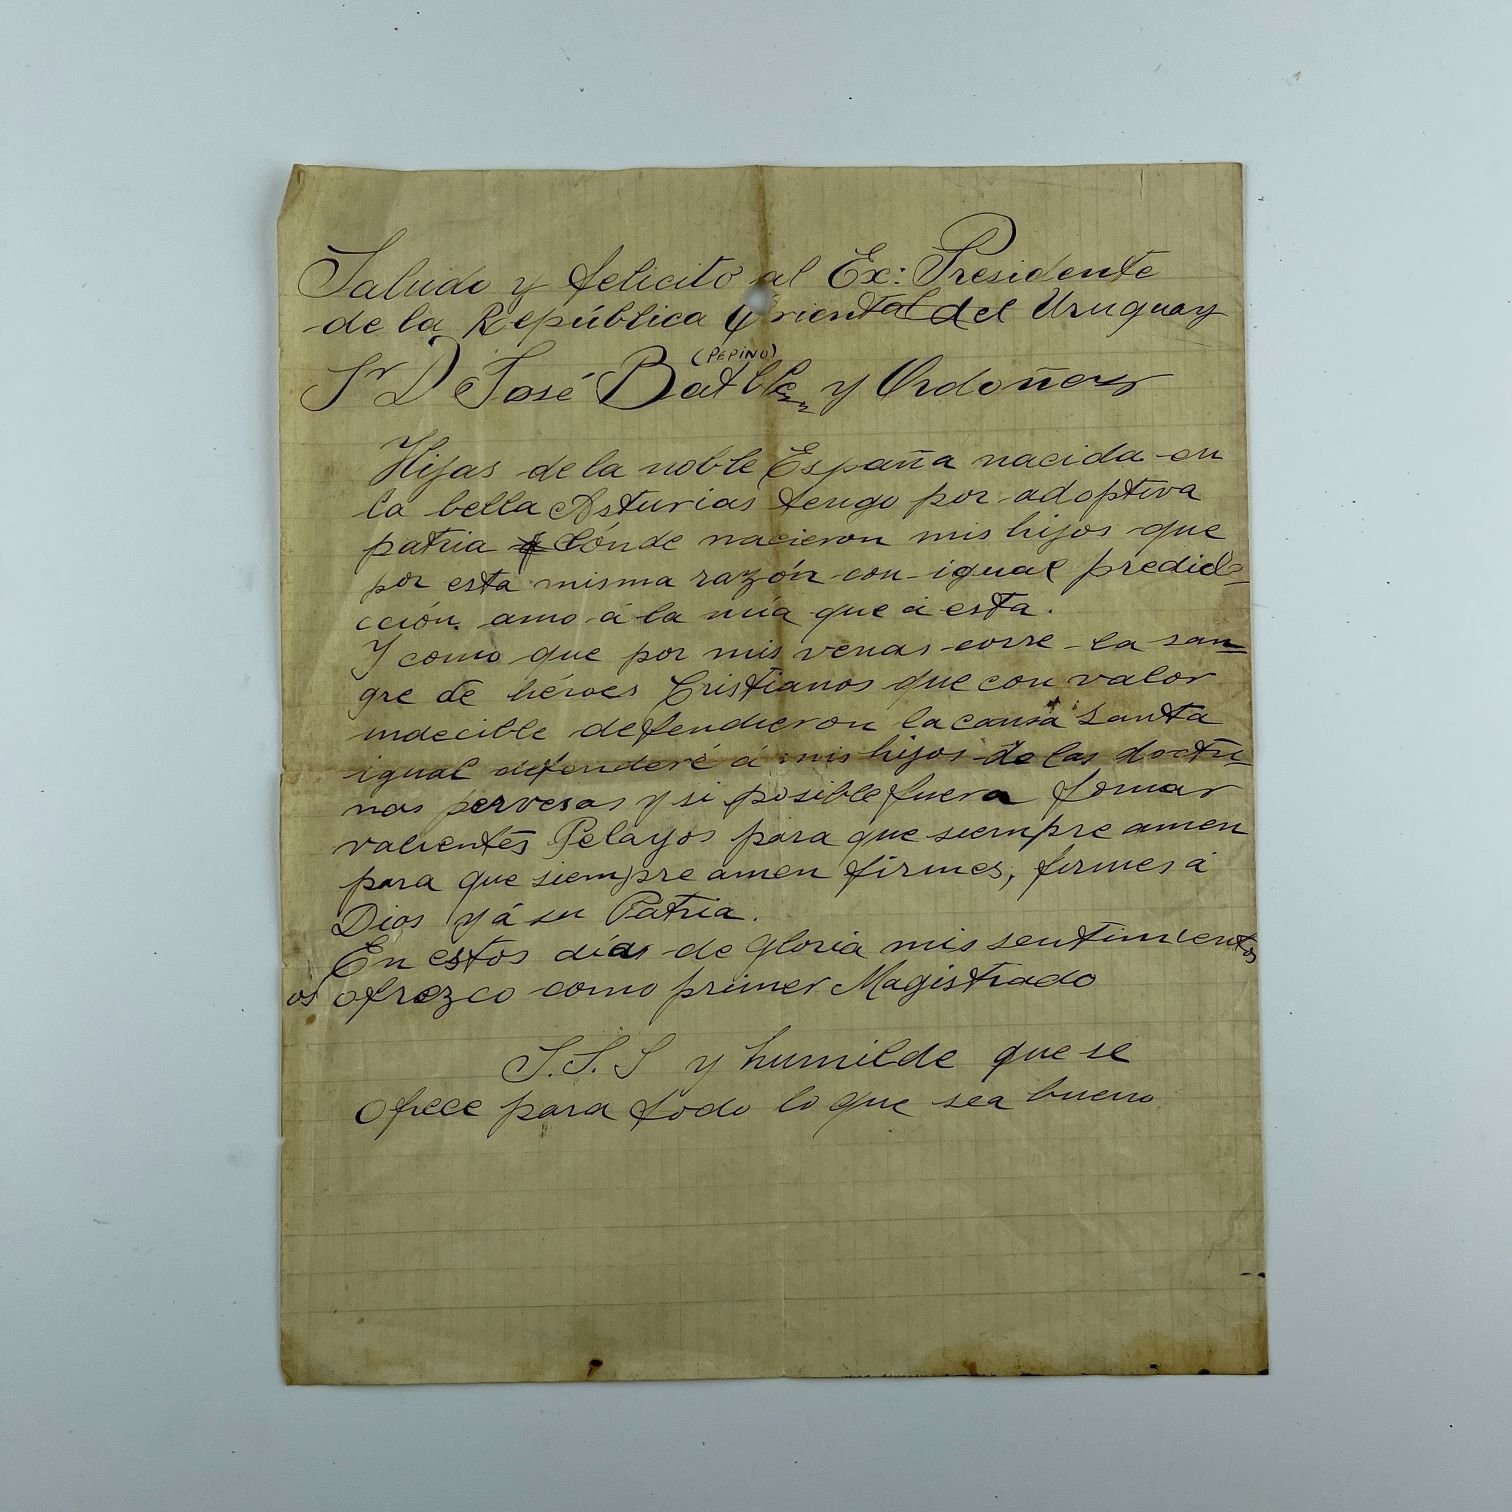 Saludo y felicito al Ex: Presidente
de la República Oriental del Uruguay
(PEPINO)
Sr D José Batlle y Ordoñez
Hijas de la noble España nacida en
la bella Asturias tengo por adoptiva
patria dónde nacieron mis hijos que
por esta misma razón con igual predile
cción amo á la mía que á esta.
Y como que por mis venas corre la san
gre de héroes Cristianos que con valor
indecible defendieron la causa santa
igual defenderé á mis hijos de las doctri
nas pervesas y si posible fuera formar
valientes Pelayos para que siempre amen
para que siempre amen firmes, firmes á
Dios y á su Patria.
En estos días de gloria mis sentimientos
os ofrezco como primer Magistrado
S.S.S y humilde que se
ofrece para todo lo que sea bueno